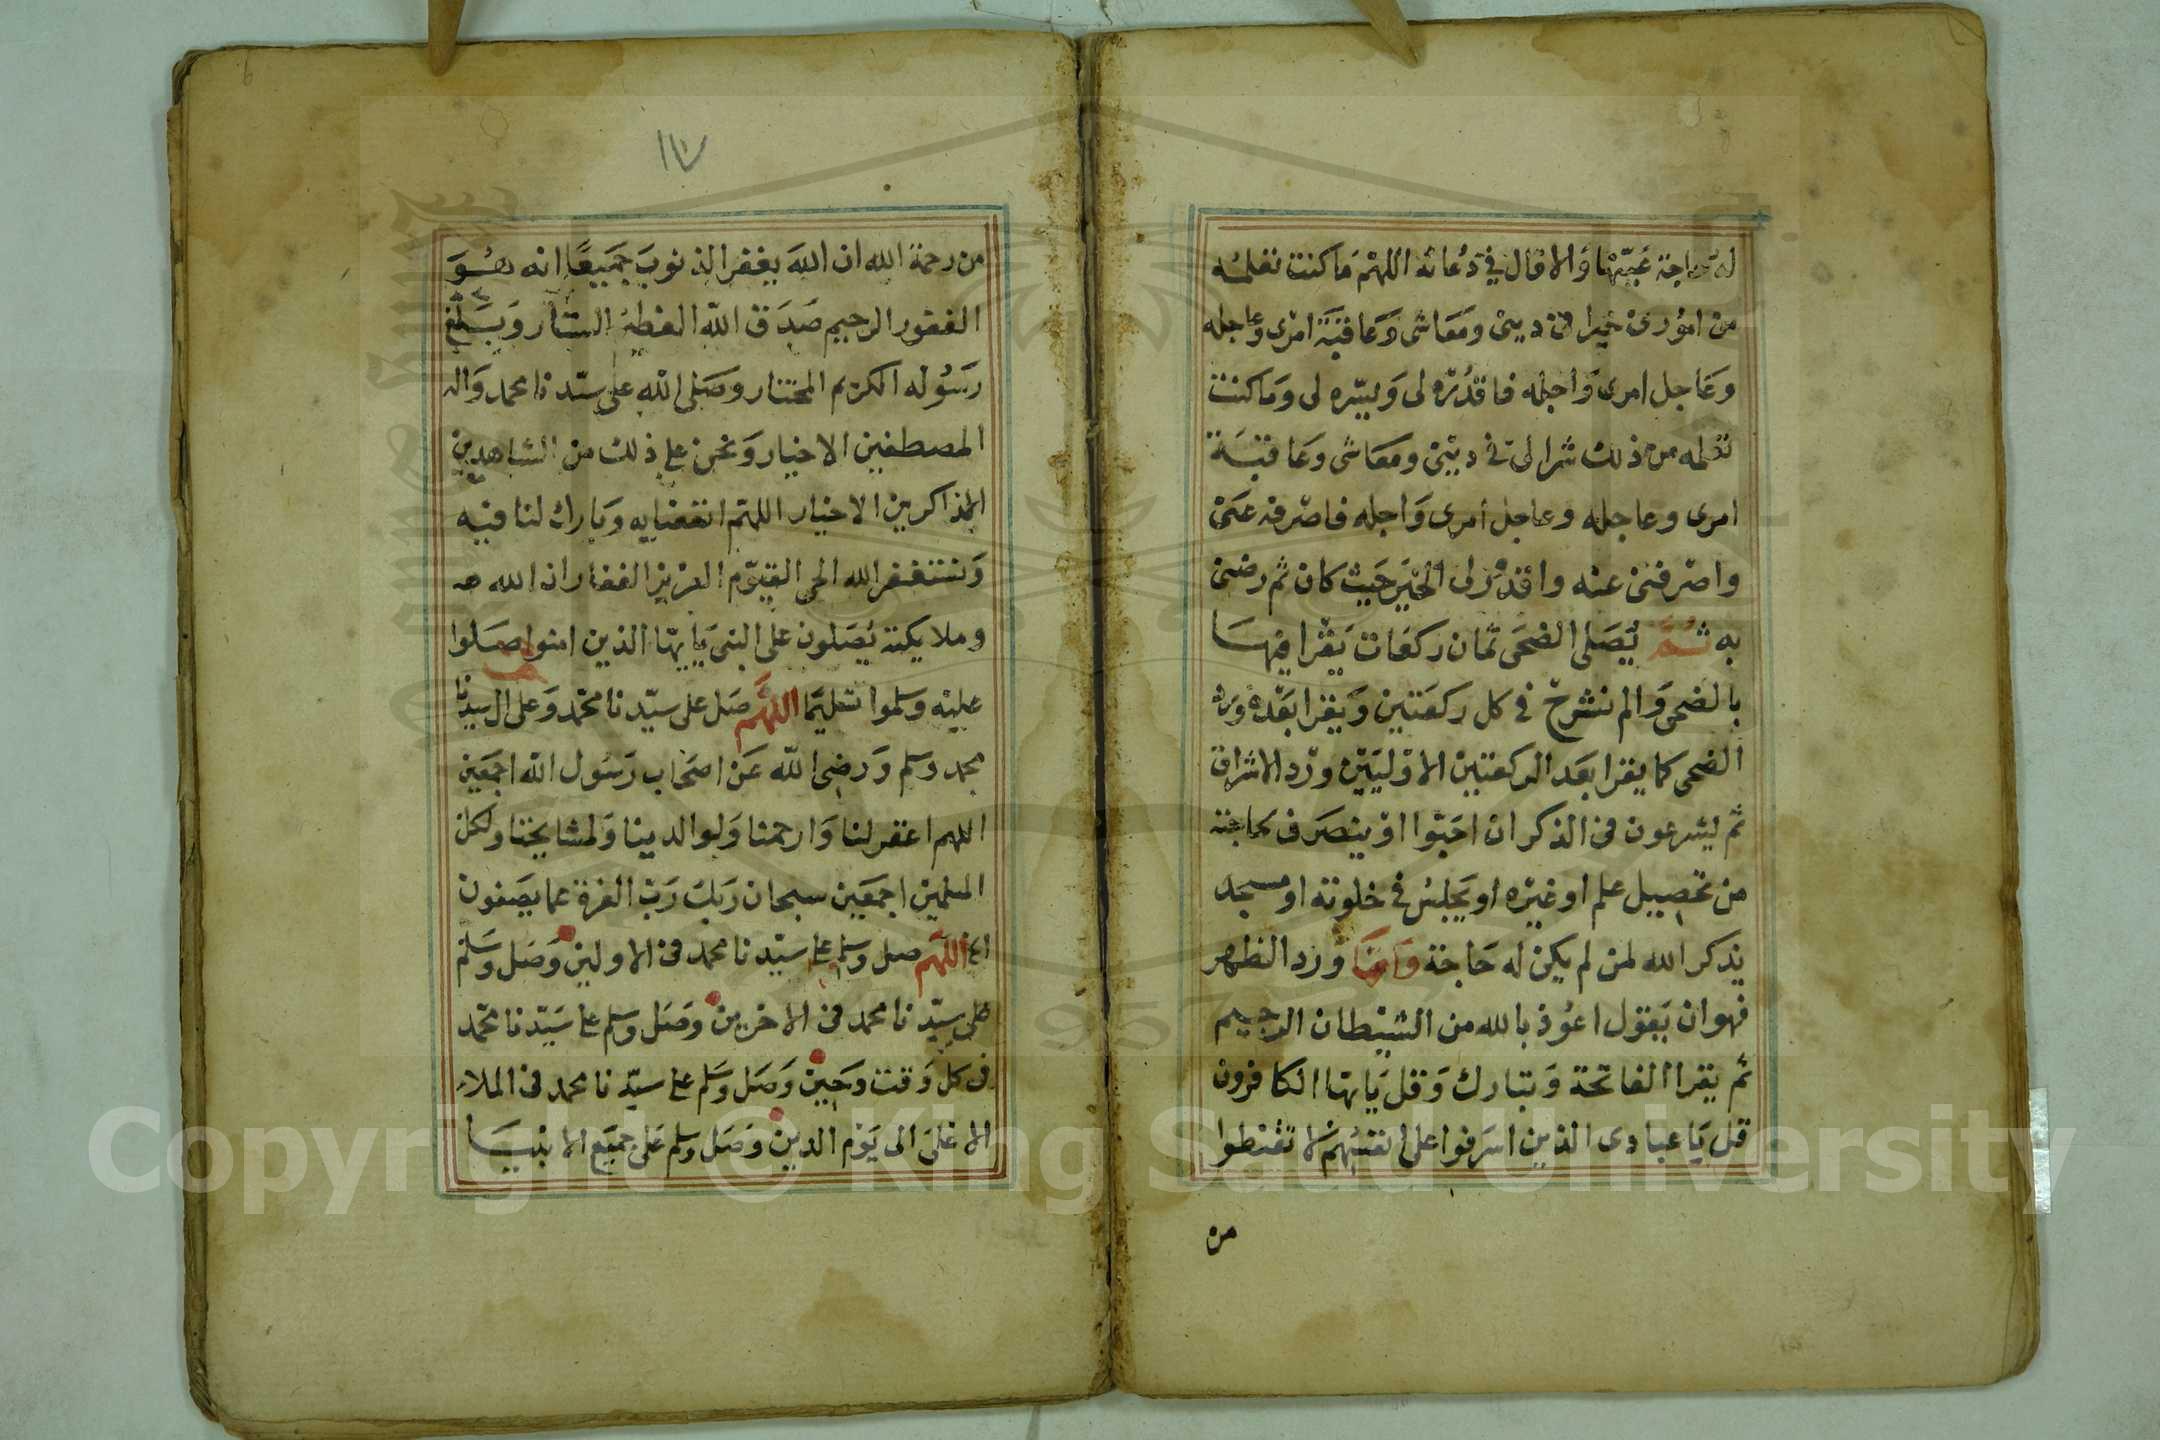 له حاجة عينها والا قال في دعائه اللهم ما كنت تعلمه
من امورى خيرا لى فى دينى ومعاشى وعاقبة امرى وعاجله
وعاجل امرى واجله فاقدره لى ويسره لى وما كنت
تعلمه من ذلك شرا لى فى دينى ومعاشى وعاقبة
امرى وعاجله وعاجل امرى واجله فاصرفه عنى
واصرفنى عنه واقدر لى الخير حيث كان ثم رضنى
به ثم يصلى الضحى ثمان ركعات يقرا فيها
بالضحى والم نشرح فى كل ركعتين ويقرا بعده ورد
الضحى كما يقرا بعد الركعتين الاوليين ورد الاشراق
ثم يشرعون فى الذكر ان احبوا او ينصرف لحاجته
من تحصيل علم او غيره او يجلس فى خلوته او مسجد
يذكر الله لمن لم يكن له حاجة واما ورد الظهر
فهو ان يقول اعوذ بالله من الشيطان الرجيم
ثم يقرا الفاتحة وتبارك وقل يايها الكافرون
قل يا عبادى الذين اسرفوا على انفسهم لا تقنطوا
من
١٧
من رحمة الله ان الله يغفر الذنوب جميعا انه هو
الغفور الرحيم صدق الله العظيم الستار وبلغ
رسوله الكريم المختار وصلى الله على سيدنا محمد واله
المصطفين الاخيار ونحن على ذلك من الشاهدين
الذاكرين الاخيار اللهم انفعنا به وبارك لنا فيه
ونستغفر الله الحى القيوم العزيز الغفار ان الله
وملايكته يصلون على النبى يايها الذين امنوا صلوا
عليه وسلموا تسليما اللهم صل على سيدنا محمد وعلى ال سيدنا
محمد وسلم ورضى الله عن اصحاب رسول الله اجمعين
اللهم اغفر لنا وارحمنا ولوالدينا ولمشايخنا ولكل
المسلمين اجمعين سبحان ربك رب العزة عما يصفون
الخ اللهم صل وسلم على سيدنا محمد فى الاولين وصل وسلم
على سيدنا محمد فى الاخرين وصل وسلم على سيدنا محمد
فى كل وقت وحين وصل وسلم على سيدنا محمد فى الملاء
الاعلى الى يوم الدين وصل وسلم على جميع الانبيا
Copyright © King Saud University